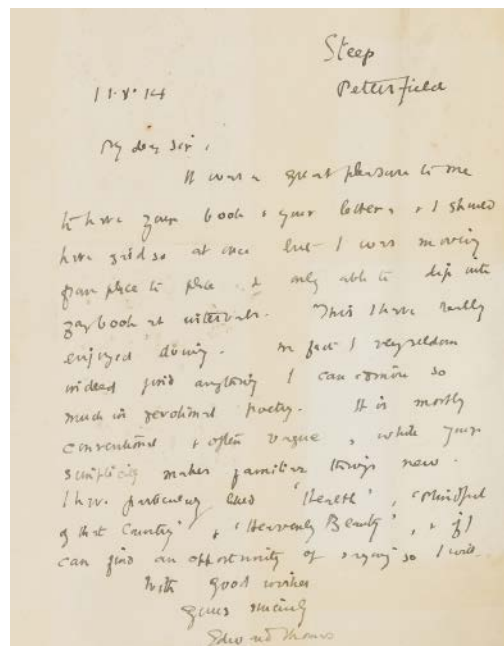 Steep
Petersfield
11.V.14
My dear Sir,
It was a great pleasure to me
to have your book & your letter, & I should
have said so at once but I was moving
from place to place & only able to dip into
yr book at intervals. This I have really
enjoyed doing. In fact I very seldom
indeed find anything I can admire so
much in devotional poetry. It is mostly
conventional & often vague, while your
simplicity makes familiar things new.
I have particularly liked 'Health', 'Mindful
of that Country' & 'Heavenly Beauty', & if I
can find an opportunity of saying so I will.
With good wishes
Yours sincerely
Edward Thomas